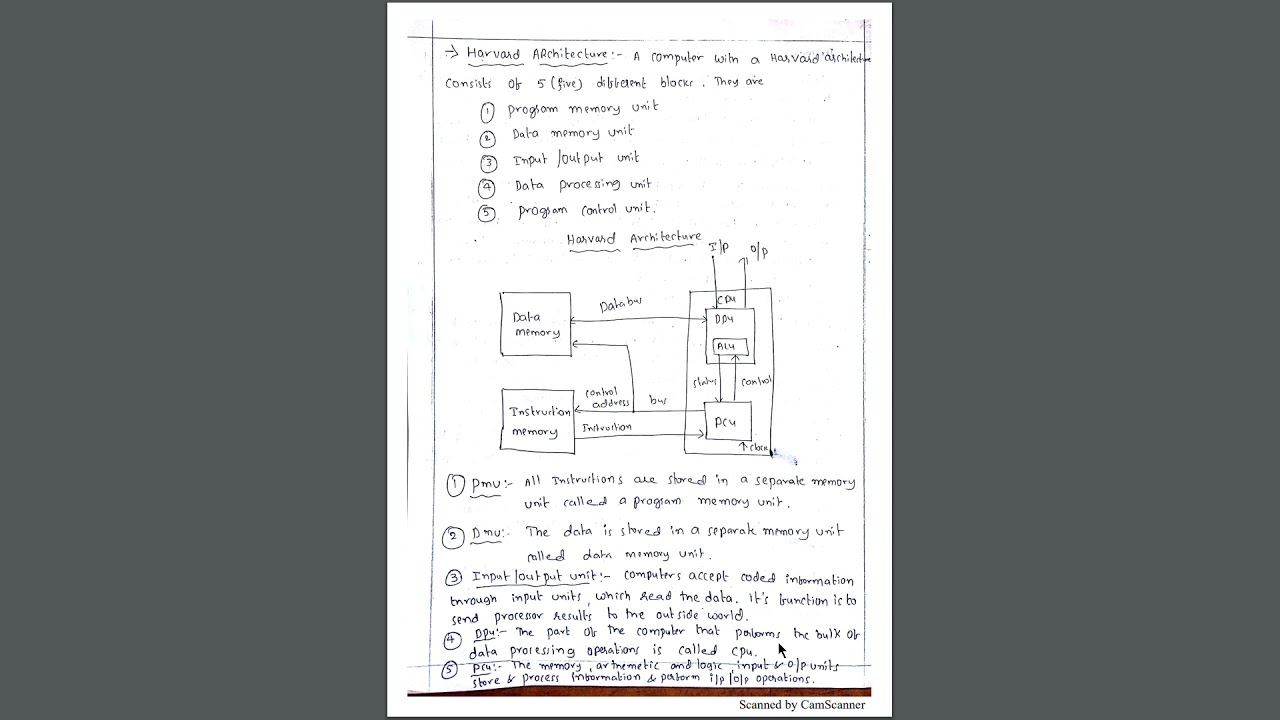 → Harvard Architecture:- A computer with a Harvard architecture
consists of 5 (five) different blocks. They are
① program memory unit
② Data memory unit
③ Input /output unit
④ Data processing unit
⑤ program control unit.
Harvard Architecture
I/p O/p
Data memory
Data bus
CPU
DPU
ALU
status
control
control address bus
Instruction memory
Instruction
PCU
clock
① pmu:- All Instructions are stored in a separate memory
unit called a program memory unit.
② Dmu:- The data is stored in a separate memory unit
called data memory unit.
③ Input/output unit:- computers accept coded information
through input units, which read the data. it's function is to
send processor results to the outside world.
④ DPU:- The part of the computer that performs the bulk of
data processing operations is called cpu.
⑤ pcu:- The memory, arthemetic and logic input & O/p units
store & process information & perform i/p /o/p operations.
Scanned by CamScanner